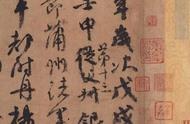 年歲次戊戌
壬申第十三從父叔銀
節蒲州諸軍
車都尉丹楊